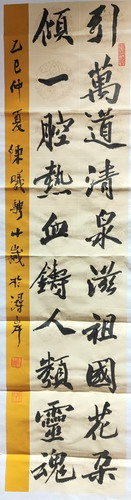 引萬道清泉滋祖國花朵
傾一腔熱血鑄人類靈魂
乙巳仲夏陳曦騁十歲於潯岸